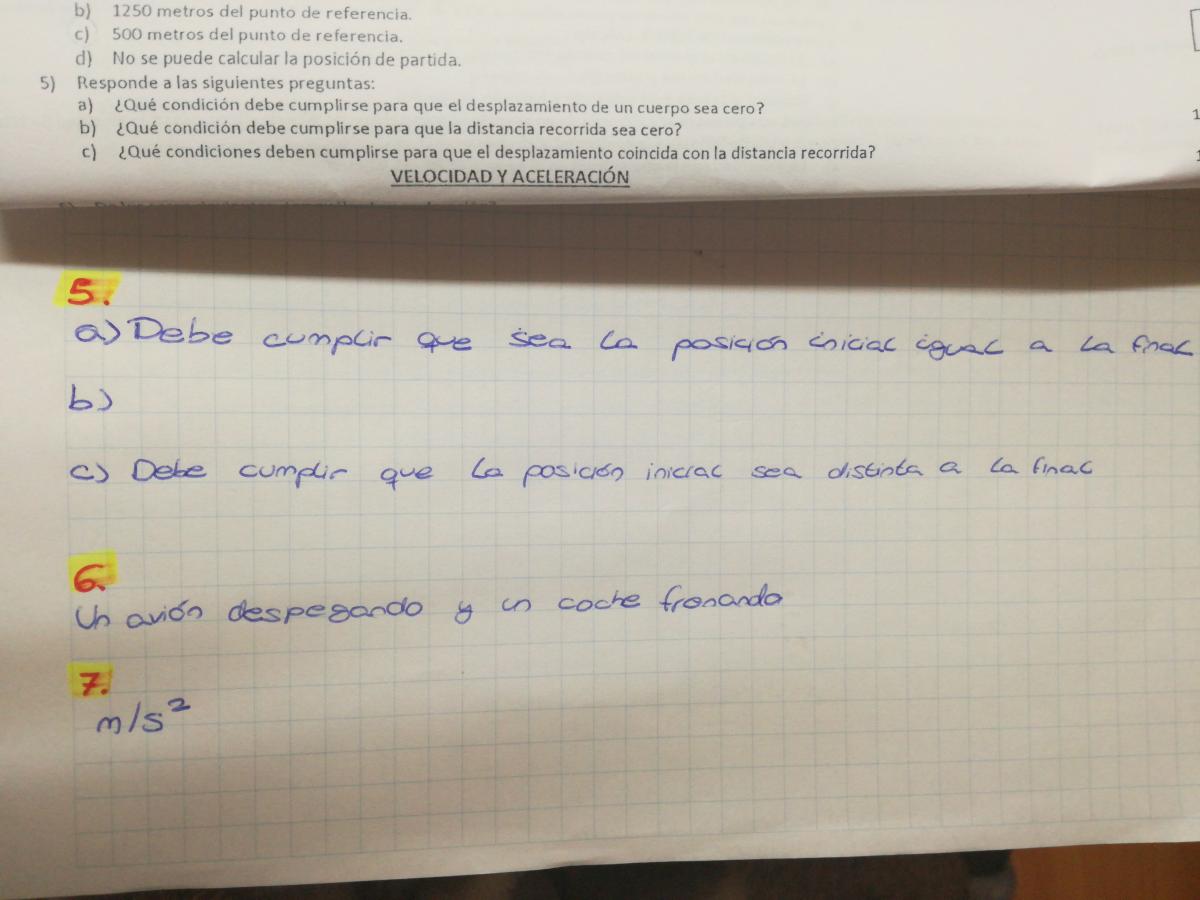 b) 1250 metros del punto de referencia.
c) 500 metros del punto de referencia.
d) No se puede calcular la posición de partida.
5) Responde a las siguientes preguntas:
a) ¿Qué condición debe cumplirse para que el desplazamiento de un cuerpo sea cero?
b) ¿Qué condición debe cumplirse para que la distancia recorrida sea cero?
c) ¿Qué condiciones deben cumplirse para que el desplazamiento coincida con la distancia recorrida?
VELOCIDAD Y ACELERACIÓN
5.
a) Debe cumplir que sea la posición inicial igual a la final
b)
c) Debe cumplir que la posición inicial sea distinta a la final
6.
Un avión despegando y un coche frenando
7.
m/s²